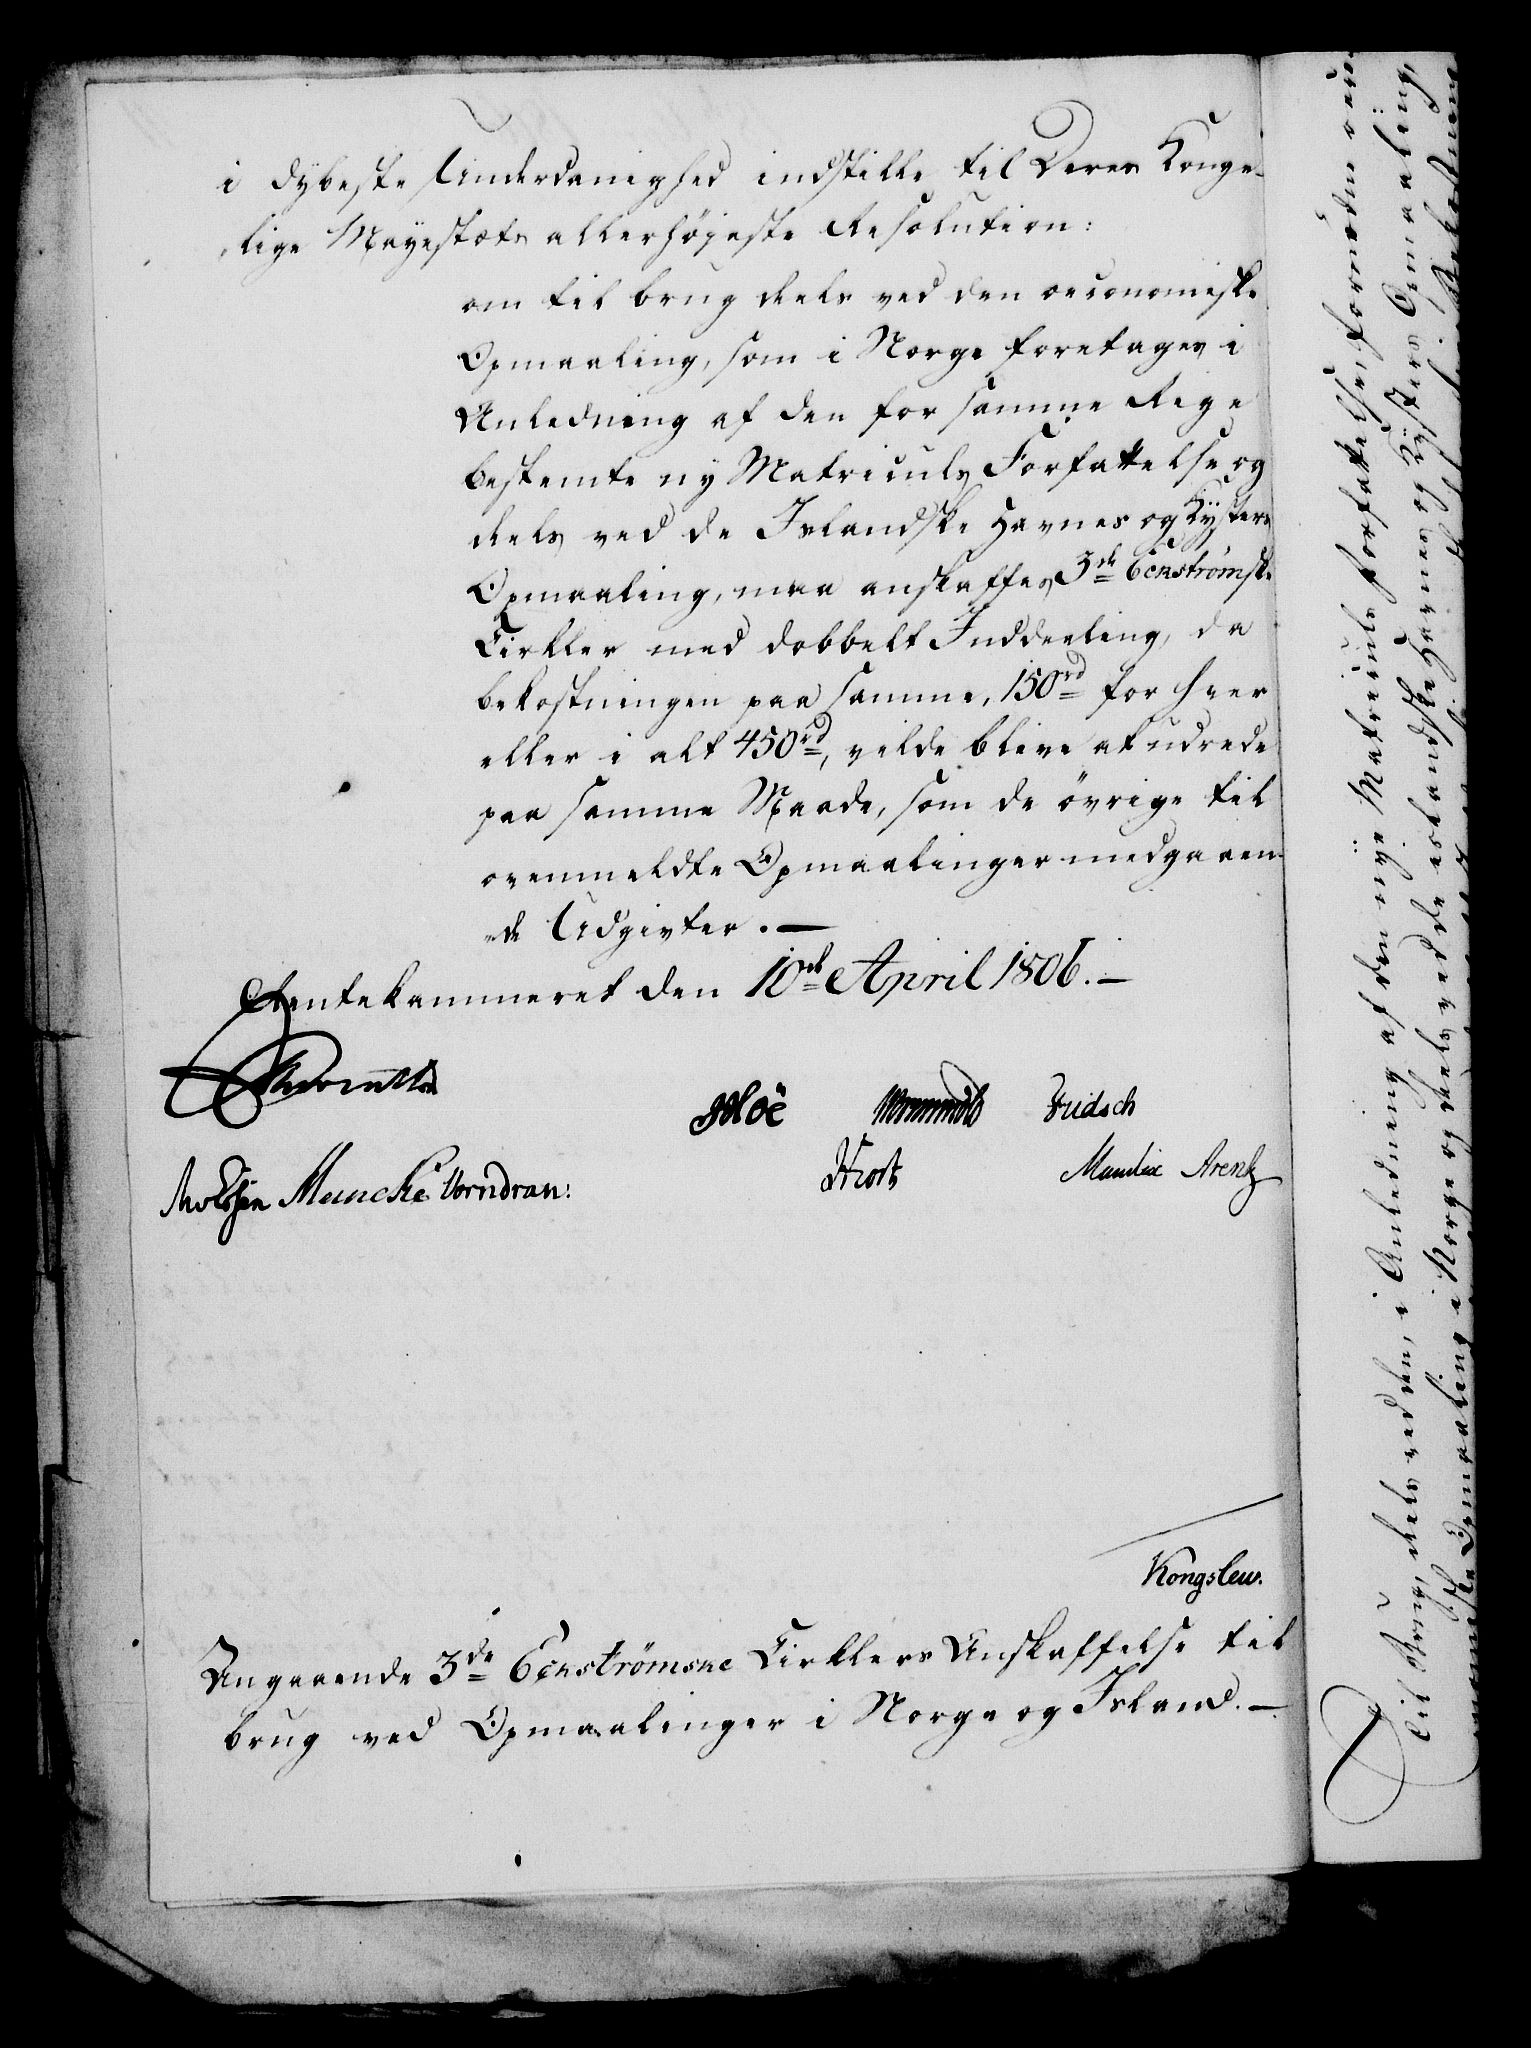 i dybeste Underdanighed indstille til Deres Konge-
lige Mayestæts allerhöyeste Resolution:
om til brug deels ved den oeconomiske
Opmaaling, som i Norge foretages i
Anledning af den for samme Rige
bestemte ny Matriculs Forfattelse og
deels ved de Islandske Havnes og Kysters
Opmaaling, maa anskaffes 3de Eckströmske
Cirkler med dobbelt Inddeeling, da
bekostningen paa samme, 150rd for hver
eller i alt 450rd, vilde blive at udrede
paa samme Maade, som de övrige til
ovenmeldte Opmaalinger medgaaen-
de Udgivter. —
Rentekammeret den 10de April 1806. —
Hoë Wormskiold Fridsch
Muncke Vorndran: Hiort Manthei Arentz
Kongslew.
Angaaende 3de Eckströmske Cirklers Anskaffelse til
brug ved Opmaalinger i Norge og Island. —
Til Brug, deels ved den, i Anledning af den nye Matriculs Forfattelse, forordne oeco-
nomiske Opmaaling i Norge og deels ved de islandske Havnes og Kysters Opmaaling,